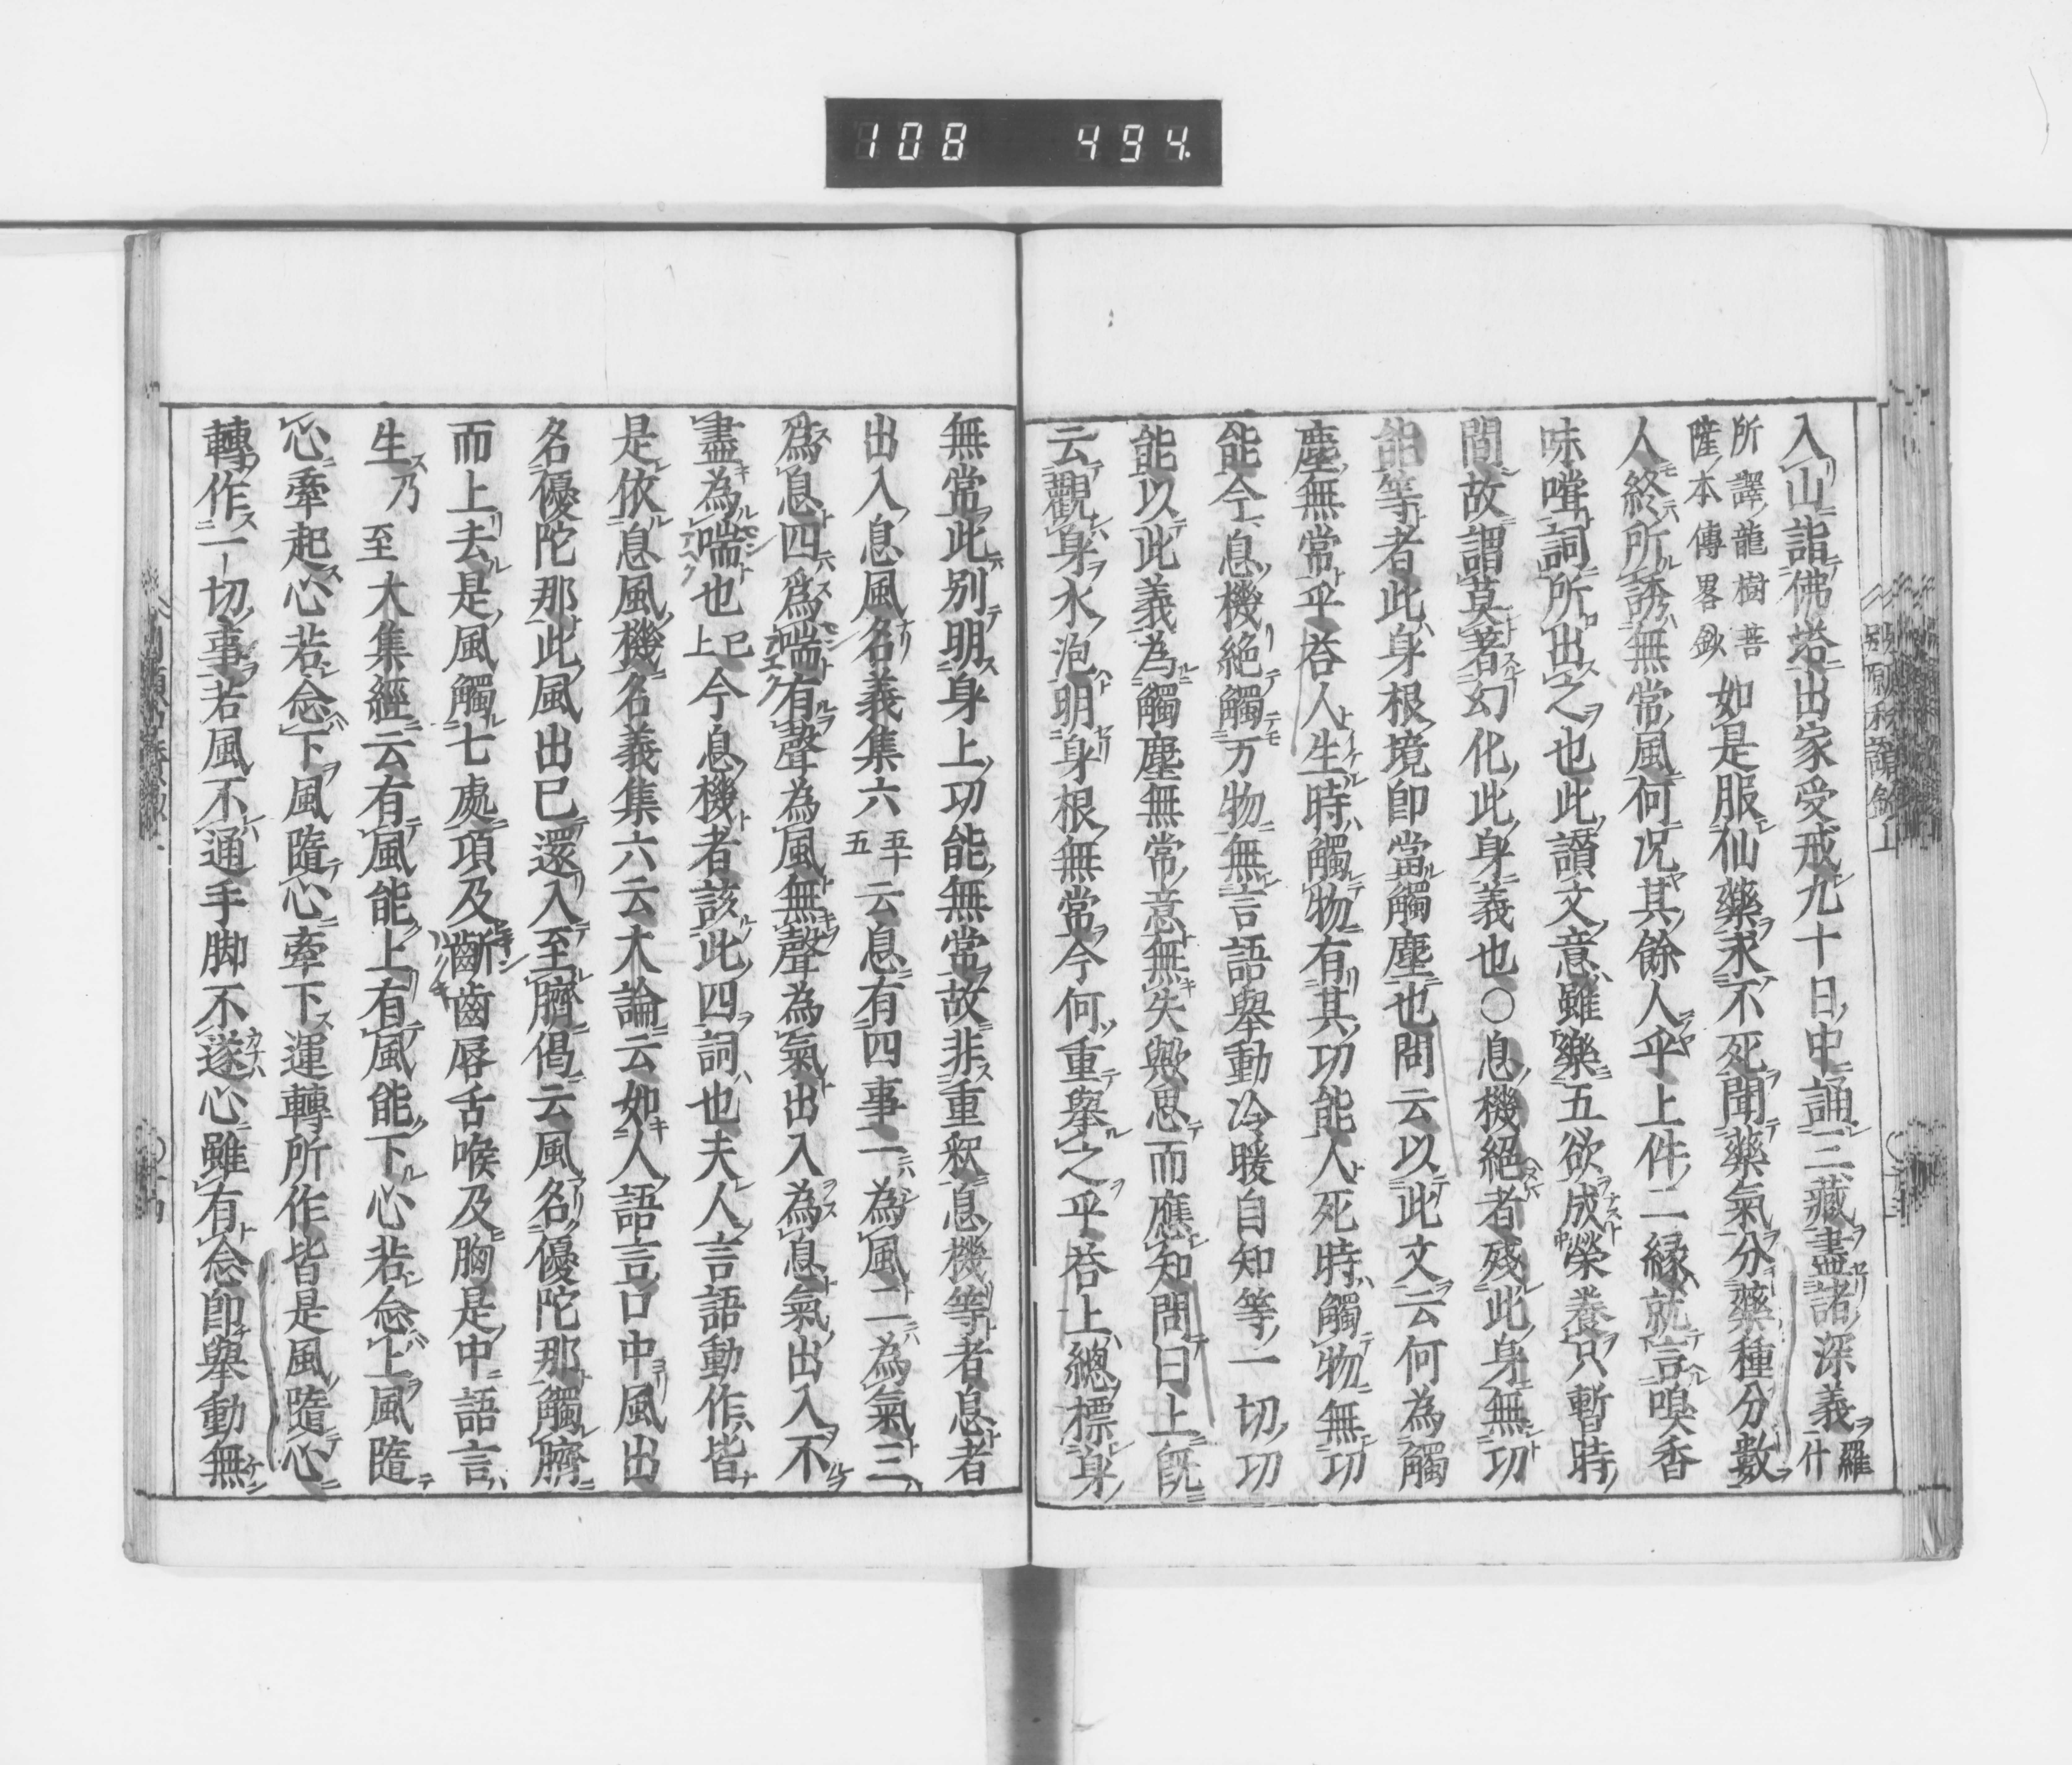 108 494.
別願和讃鈔上
入山詣佛塔出家受戒九十日中誦三藏盡諸深義羅什
所譯龍樹菩薩本傳畧鈔如是服仙藥求不死聞藥氣分藥種分數
人終所誘無常風何况其餘人乎上件二縁就言嗅香
味嘗詞所出之也此讃文意雖樂五欲成榮養只暫時
間故謂莫著幻化此身義也○息機絕者殘此身無功
能等者此身根境即當觸塵也問云以此文云何為觸
塵無常乎荅人生時觸物有其功能人死時觸物無功
能今息機絕觸万物無言語舉動冷暖自知等一切功
能以此義為觸塵無常意無失歟思而應知問曰上旣
云觀身水泡明身根無常今何重舉之乎荅上總標身
無常此別明身上功能無常故非重釈息機等者息者
出入息風名義集六五十五云息有四事一為風二為氣三
為息四爲喘有聲為風無聲為氣出入為息氣出入不
盡為喘也已上今息機者該此四詞也夫人言語動作皆
是依息風機名義集六云大論云如人語言口中風出
名優陀那此風出已還入至臍偈云風名優陀那觸臍
而上去是風觸七處項及齗齒唇舌喉及胸是中語言
生乃至大集經云有風能上有風能下心若念上風隨
心牽起心若念下風隨心牽下運轉所作皆是風隨心
轉作一切事若風不通手脚不遂心雖有念即舉動無